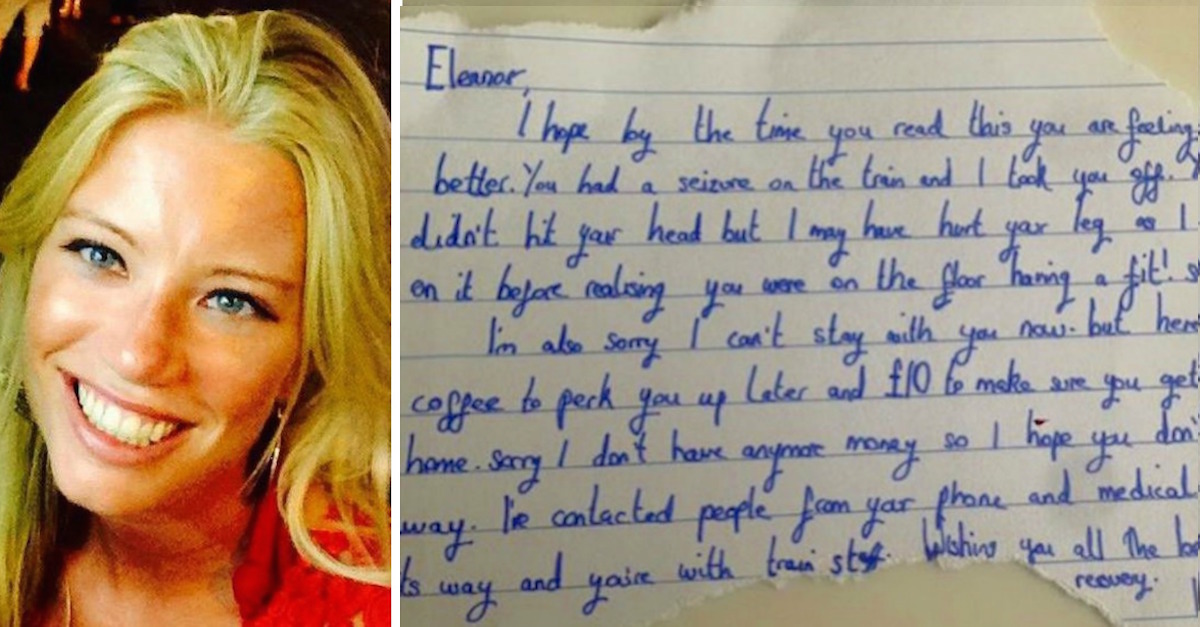 Eleanor,
I hope by the time you read this you are feeling
better. You had a seizure on the train and I took you off.
didn't hit your head but I may have hurt your leg as I
on it before realising you were on the floor having a fit! s
I'm also sorry I can't stay with you now. but here
coffee to perk you up later and £10 to make sure you get
home. Sorry I don't have anymore money so I hope you don't
way. I've contacted people from your phone and medical
ts way and you're with train staff. Wishing you all the
recovery.